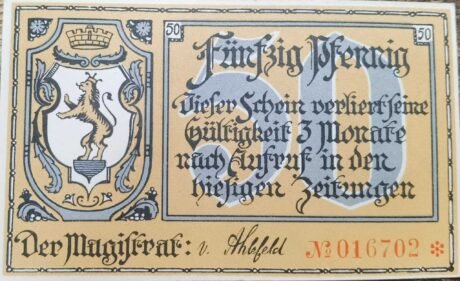 50
50
Fünfzig Pfennig
50
Dieser Schein verliert seine
Gültigkeit 3 Monate
nach Aufruf in den
hiesigen Zeitungen
Der Magistrat: v. Ahlefeld
№ 016702 *